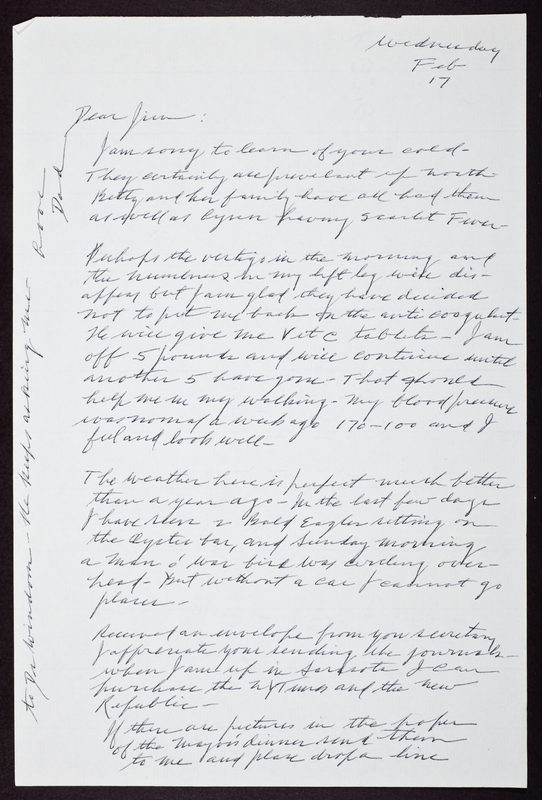 Wednesday
Feb
17
Dear Jim :
I am sorry to learn of your cold -
They certainly are prevelant up north
Betty and her family have all had them
as well as Lynn having Scarlet Fever -
Perhaps the vertigo in the morning and
the numbness in my left leg will dis-
appear but I am glad they have decided
not to put me back on the anti coagulant -
He will give me Vit C tablets - I am
off 5 pounds and will continue until
another 5 have gone - That should
help me in my walking - My blood pressure
was normal a week ago 170-100 and I
feel and look well -
The weather here is perfect much better
than a year ago - In the last few days
I have seen 2 Bald Eagles sitting on
the Oyster bar, and Sunday morning
a man o' war bird was circling over-
head - But without a car I cannot go
places -
Received an envelope from your secretary
I appreciate your sending the journals -
when I am up in Sarasota I can
purchase the NY Times and the New
Republic -
If there are pictures in the paper
of the Mayors dinner send them
to me and please drop a line
to Dr Windom - He keeps asking me
Love
Dad